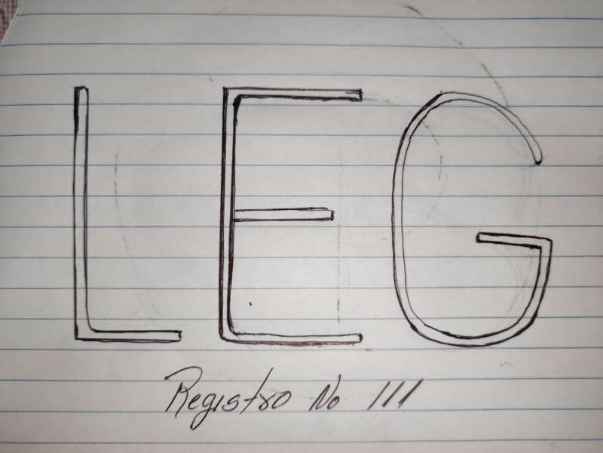 LEG
Registro No 111